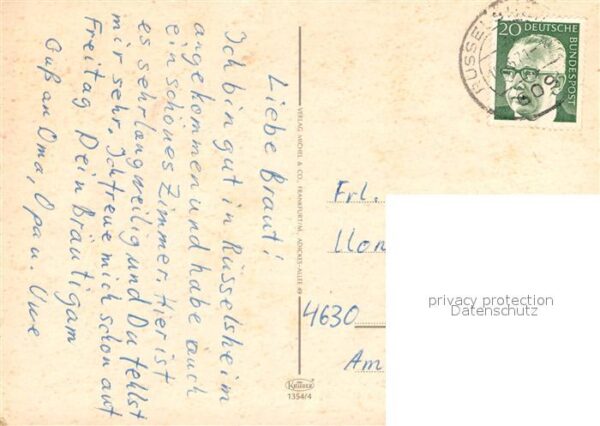 Liebe Braut!
Ich bin gut in Rüsselsheim
angekommen und habe auch
ein schönes Zimmer. Hier ist
es sehr langweilig und Du fehlst
mir sehr. Ich freue mich schon auf
Freitag Dein Bräutigam
Gruß an Oma, Opa u. Uwe
VERLAG MICHEL & CO., FRANKFURT/M., ADICKES-ALLEE
Krüger
1354/4
20 DEUTSCHE
BUNDESPOST
RÜSSELSHEIM
Frl.
4630
Am
privacy protection
Datenschutz